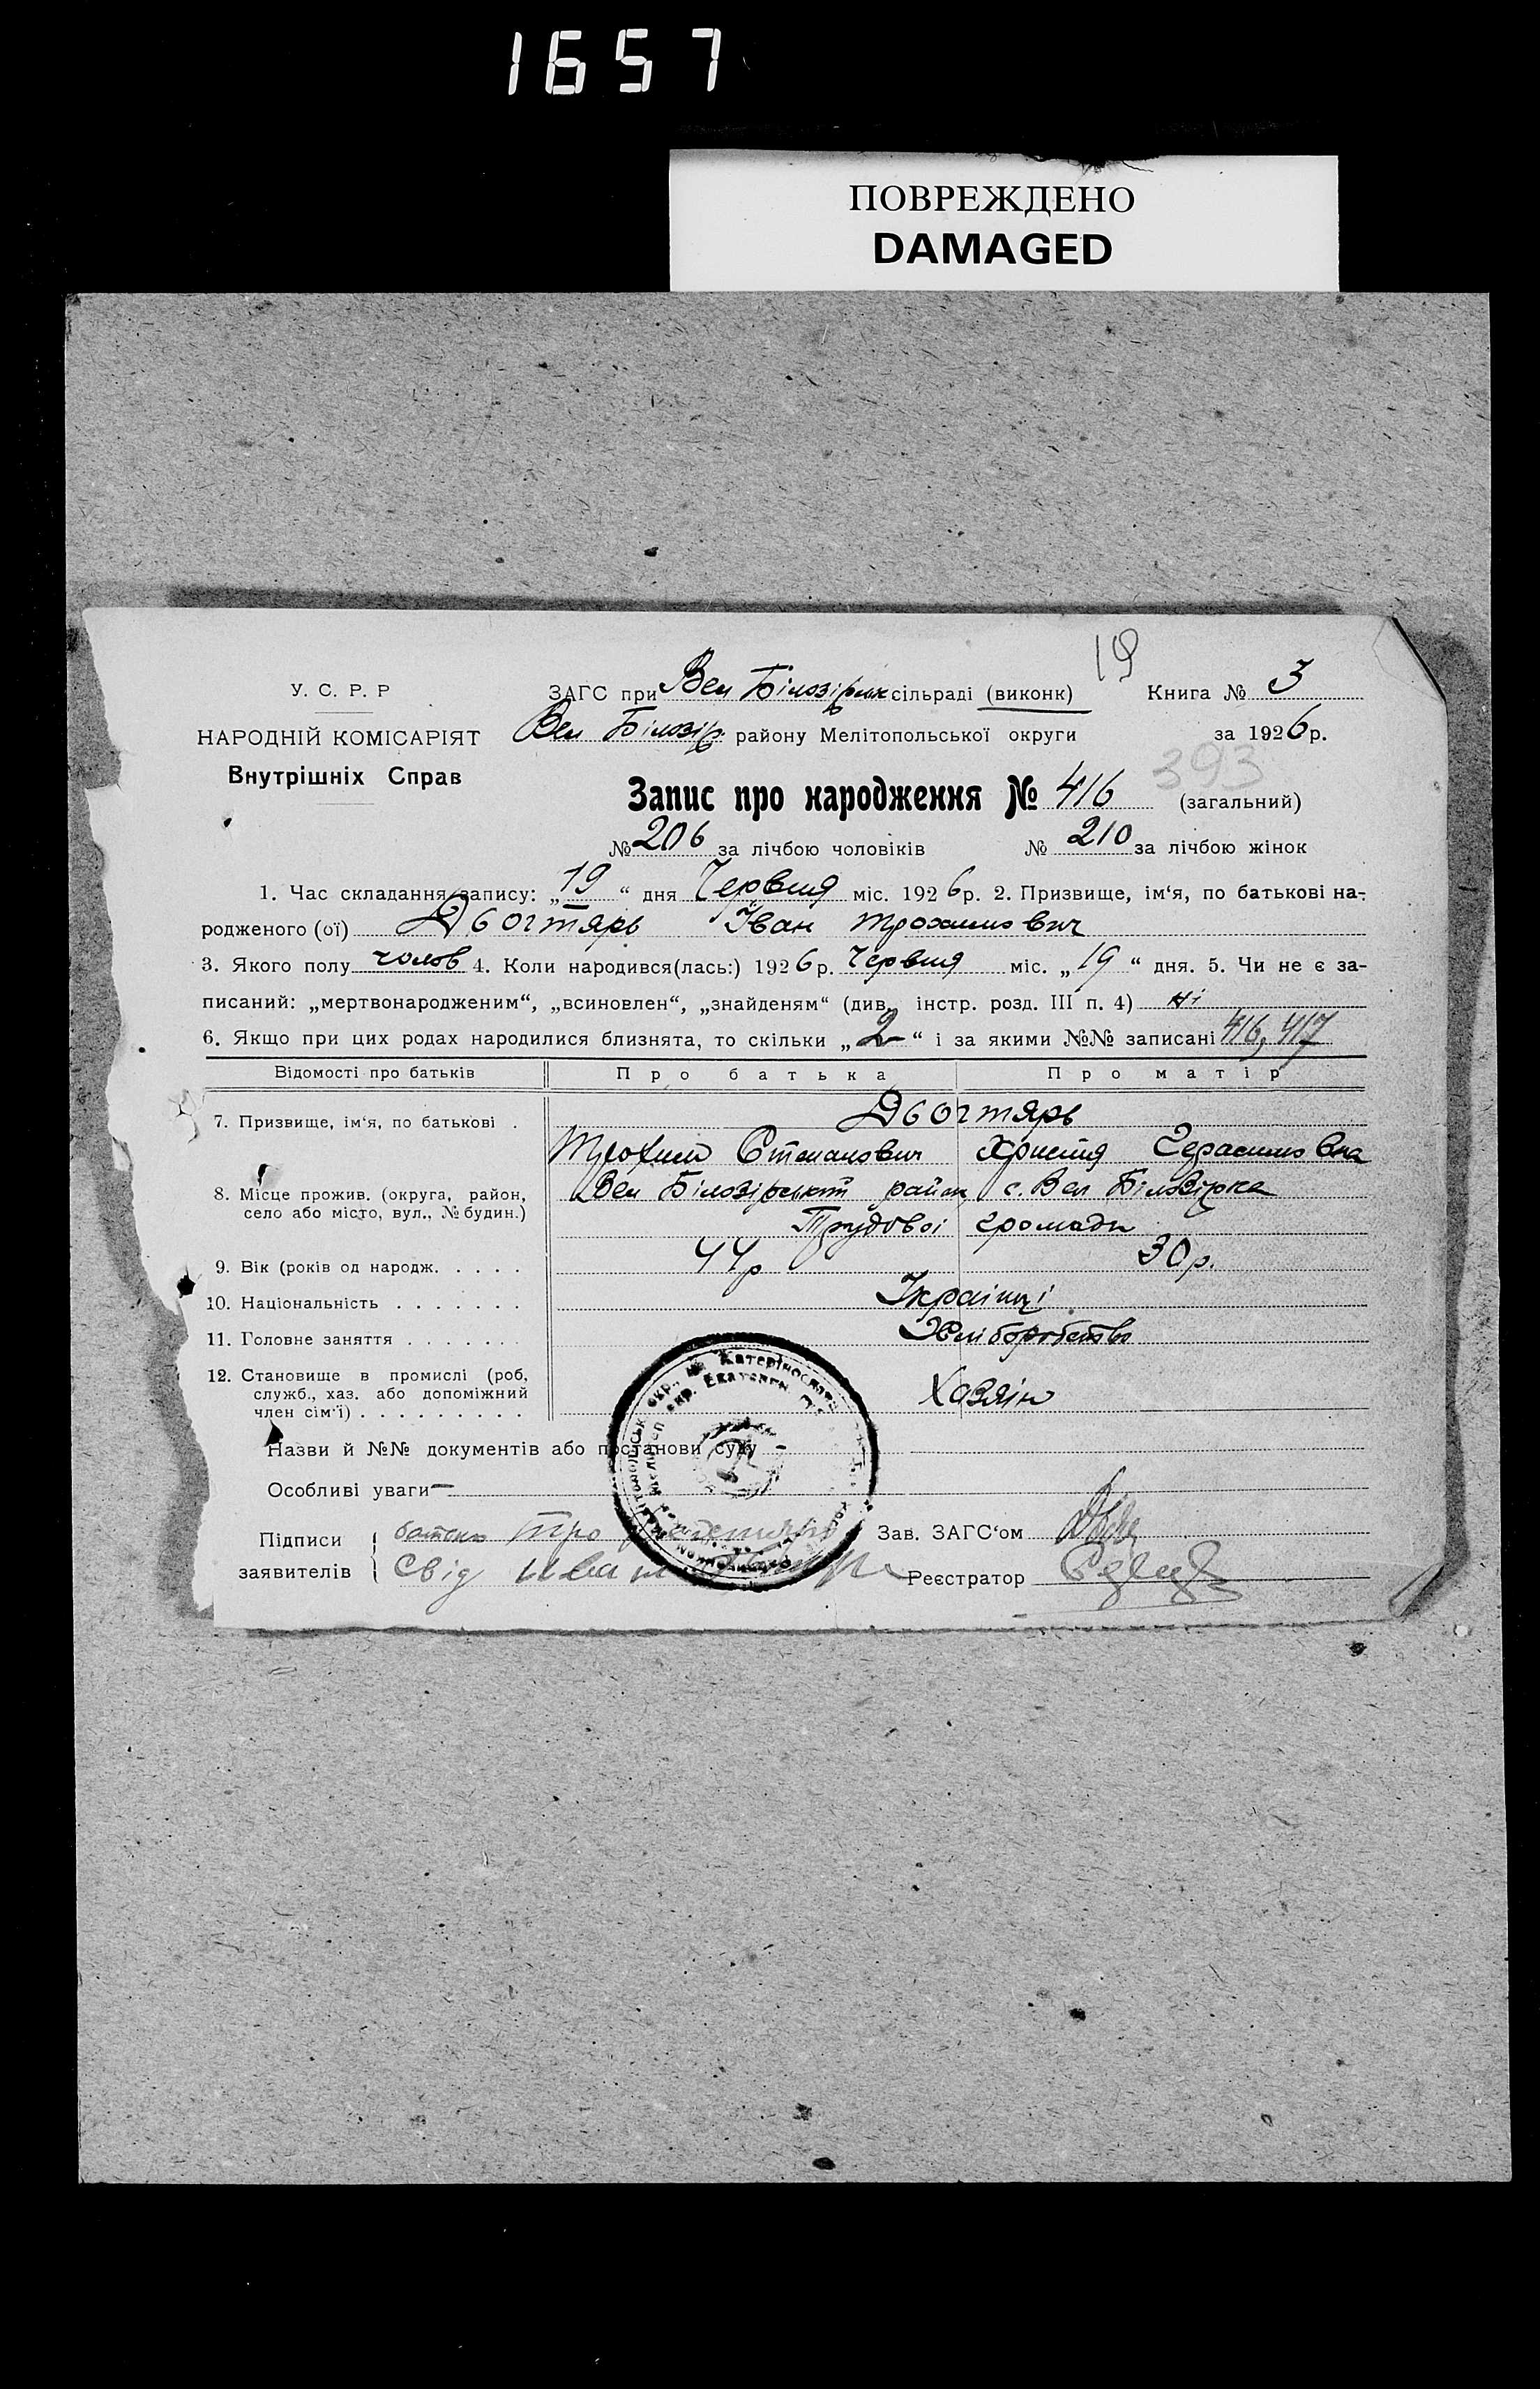 1657
ПОВРЕЖДЕНО
DAMAGED
19
У. С. Р. Р
ЗАГС при Вел Білозірськ сільраді (виконк)
Книга № 3
НАРОДНІЙ КОМІСАРІЯТ
Вел Білозір. району Мелітопольської округи
за 1926 р.
Внутрішніх Справ
393
Запис про народження № 416 (загальний)
№ 206 за лічбою чоловіків № 210 за лічбою жінок
1. Час складання запису: „19“ дня Червня міс. 1926 р. 2. Призвище, ім‘я, по батькові на-
родженого (ої) Дьогтярь Іван Трохимович
3. Якого полу чолов 4. Коли народився(лась:) 1926 р. Червня міс. „19“ дня. 5. Чи не є за-
писаний: „мертвонародженим“, „всиновлен“, „знайденям“ (див. інстр. розд. III п. 4) ні
6. Якщо при цих родах народилися близнята, то скільки „2“ і за якими №№ записані 416, 417
Відомості про батьків Про батька Про матір
7. Призвище, ім‘я, по батькові . Дьогтярь
Трохим Степанович Христя Герасимовна
8. Місце прожив. (округа, район,
село або місто, вул., № будин.)
Вел Білозірський район с. Вел Білозірка
Трудової громади
9. Вік (років од народж. . . . . 44р 30р.
10. Національність . . . . . . . Українці
11. Головне заняття . . . . . . Хліборобство
12. Становище в промислі (роб,
служб., хаз. або допоміжний
член сім‘ї) . . . . . . . . . Хазяін
Назви й №№ документів або постанови суду -
Особливі уваги —
Підписи
заявителів
батько
Свід
Зав. ЗАГС‘ом
Реєстратор